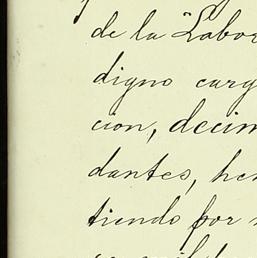 de la Labor
digno carg
cion, decim
dantes, her
tiendo por